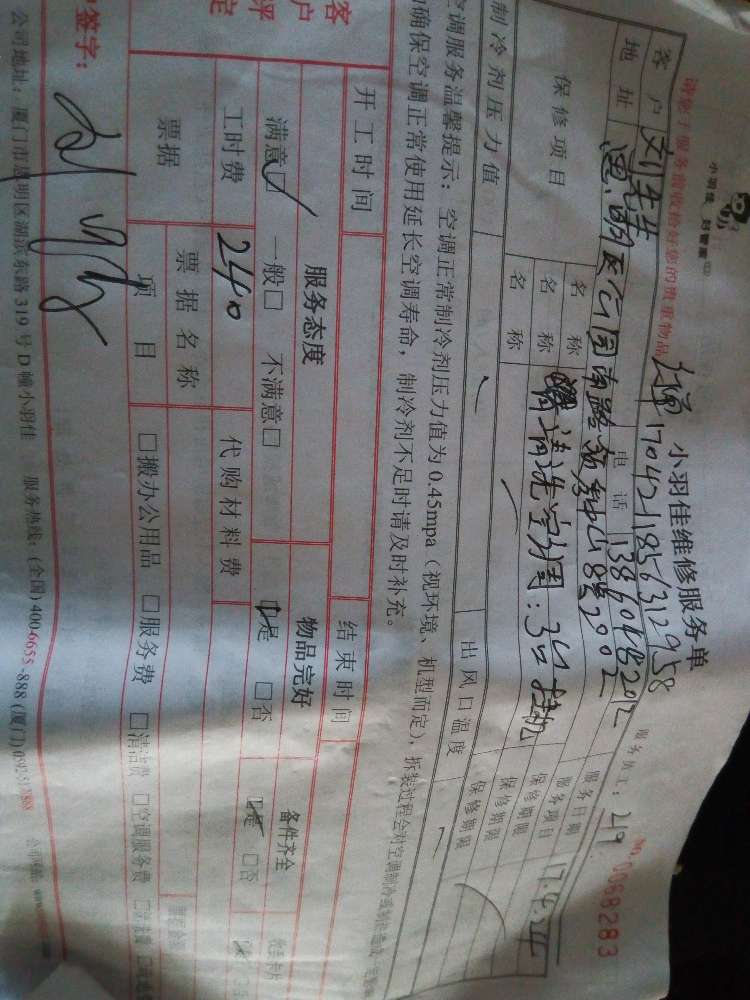 小羽佳 好管家
请您于服务前收拾好您的贵重物品
小羽佳维修服务单
No. 0068283
服务员工: 219
170421856312958
客户 刘先生 电话 13860482012
服务日期
地址 思明区
服务项目
保修项目 名称 保修期限
名称 清洗空调:3台挂机 保修期限
名称 保修期限
制冷剂压力值 出风口温度
空调服务温馨提示:空调正常制冷剂压力值为0.45mpa(视环境、机型而定),拆装过程会对空调制冷
确保空调正常使用延长空调寿命,制冷剂不足时请及时补充。
开工时间 结束时间
客户评定
服务态度 物品完好 备件齐全
满意□ 一般□ 不满意□ □是 □否 □是 □否
工时费 240 代购材料费
票据 票据名称
项目 □搬办公用品 □服务费 □清洁费 □空调服务费
签字:
公司地址:厦门市思明区湖滨东路319号D幢小羽佳 服务热线:(全国)400-6655-888(厦门)